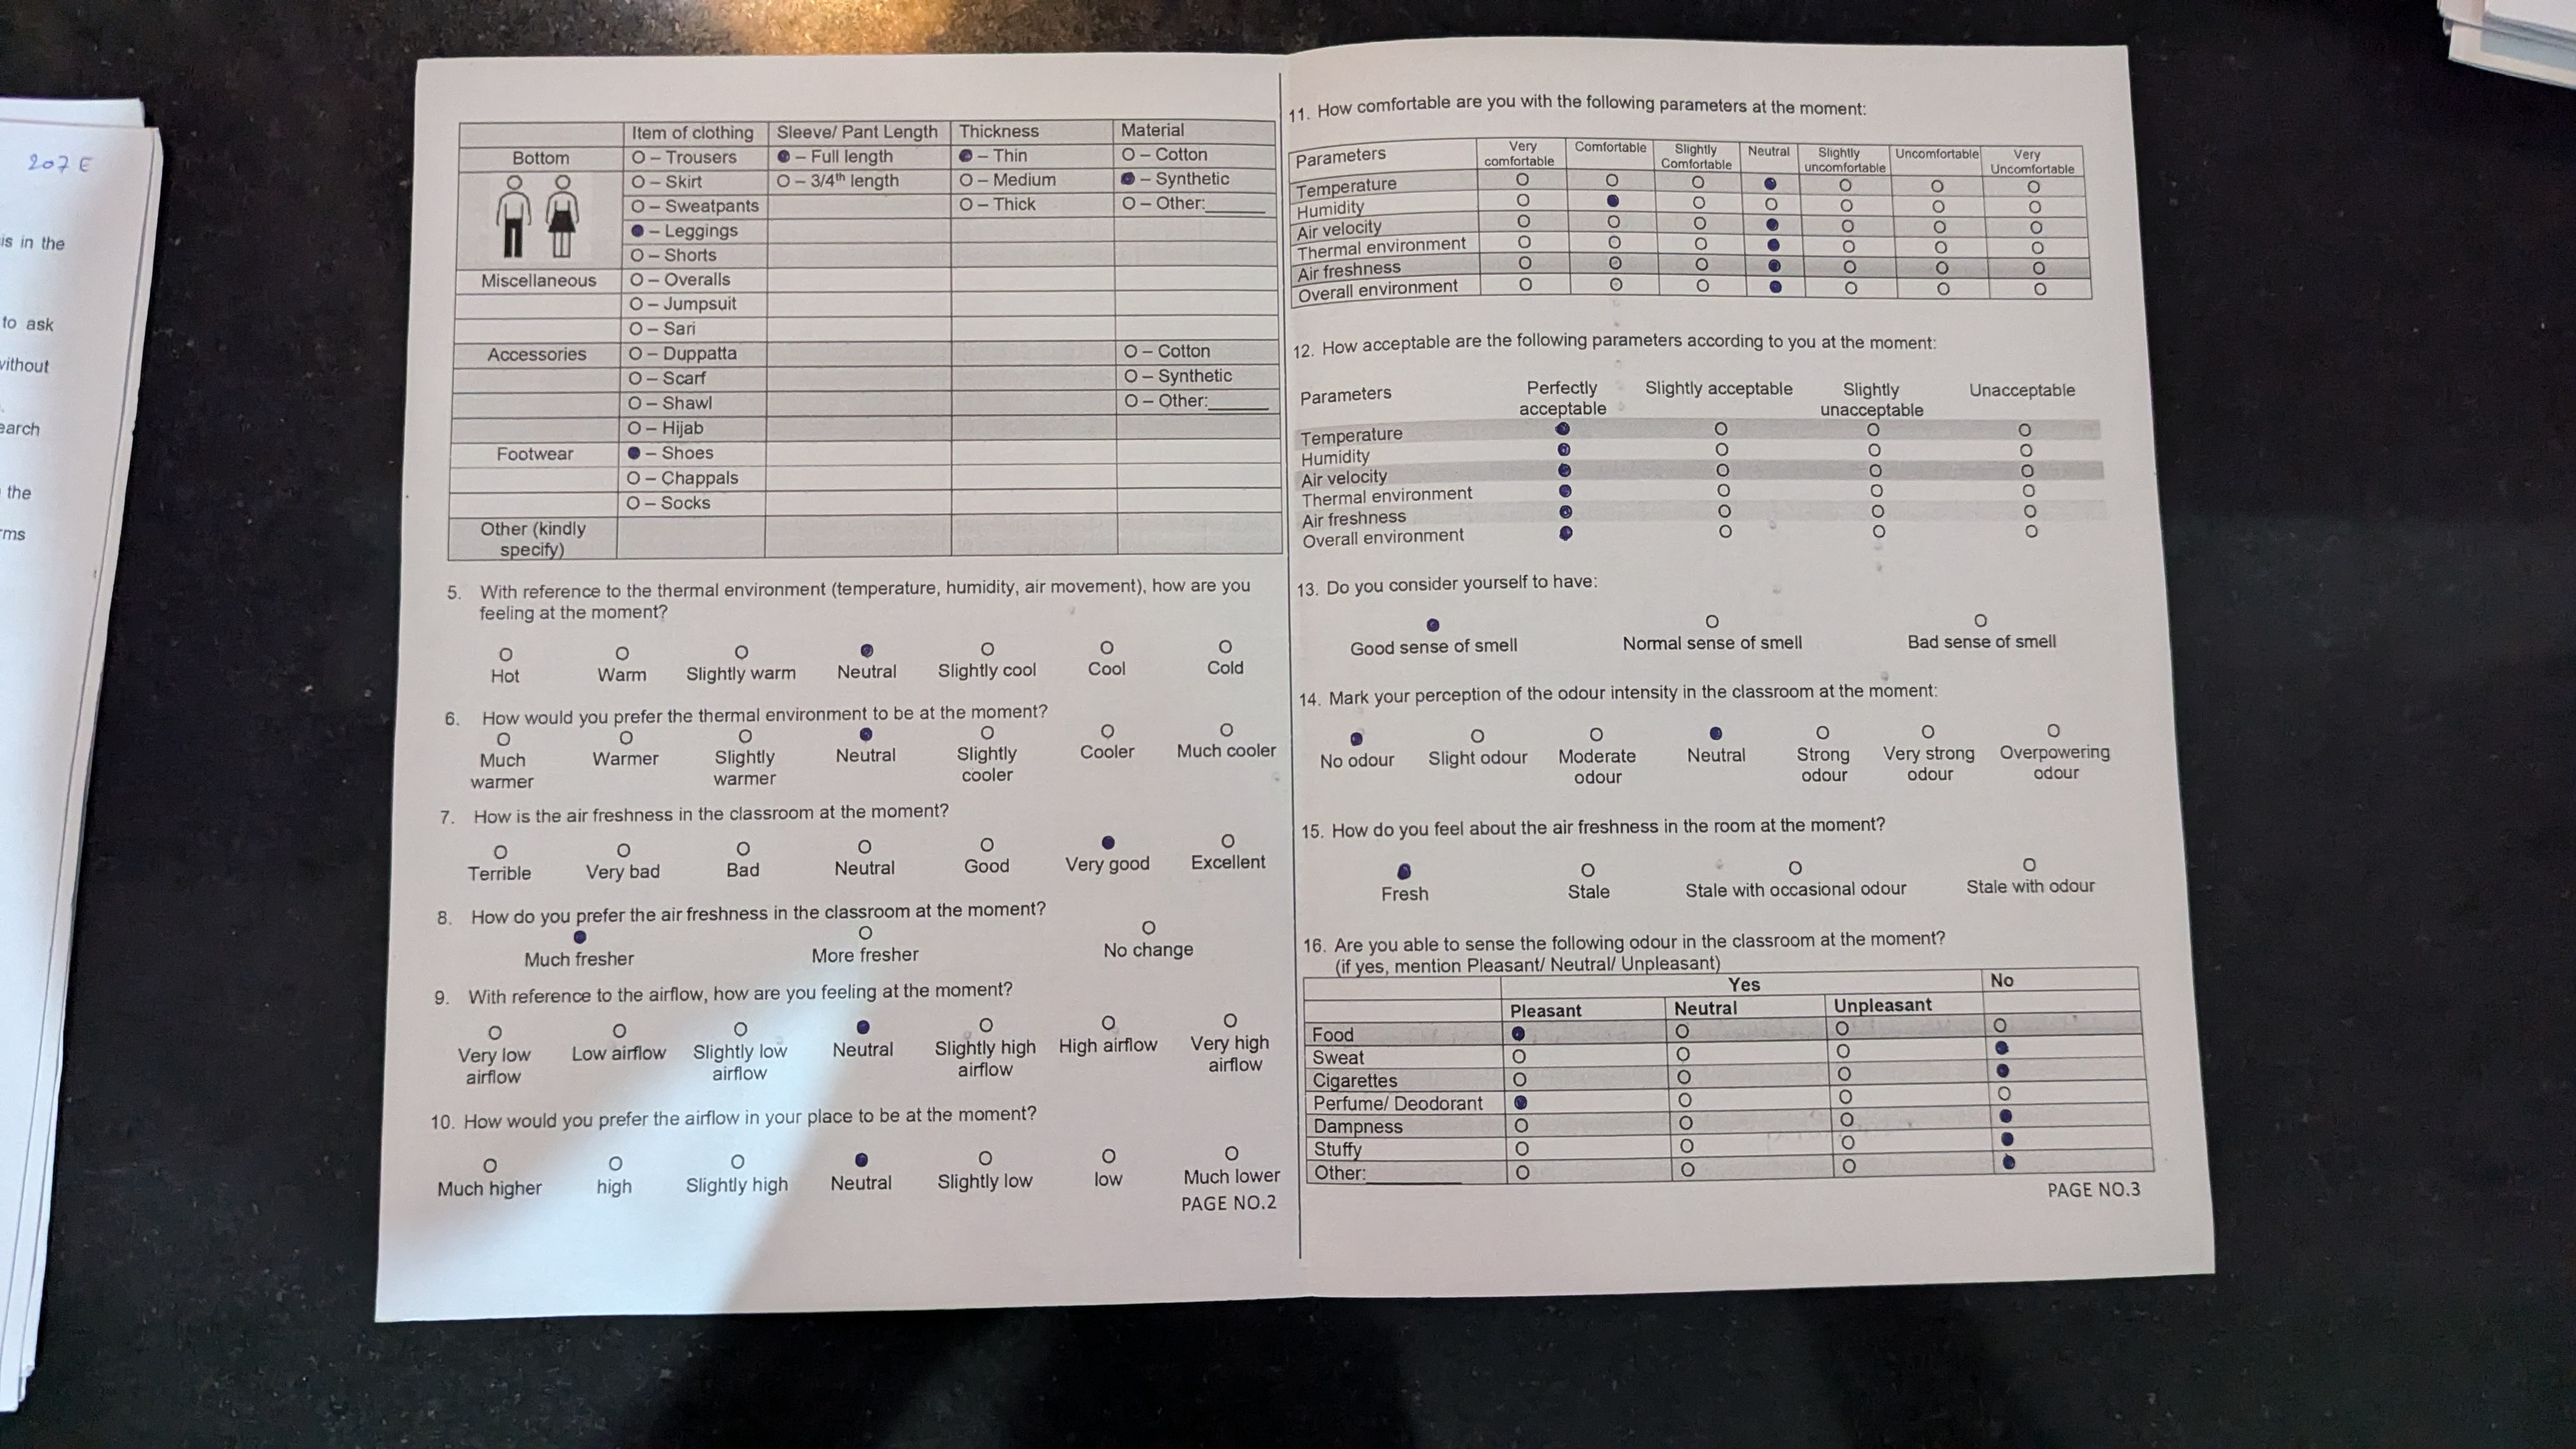 207 E
is in the
to ask
without
earch
the
rms
Item of clothing Sleeve/ Pant Length Thickness Material
Bottom O – Trousers ● – Full length ● – Thin O – Cotton
O – Skirt O – 3/4th length O – Medium ● – Synthetic
O – Sweatpants O – Thick O – Other:______
● – Leggings
O – Shorts
Miscellaneous O – Overalls
O – Jumpsuit
O – Sari
Accessories O – Duppatta O – Cotton
O – Scarf O – Synthetic
O – Shawl O – Other:______
O – Hijab
Footwear ● – Shoes
O – Chappals
O – Socks
Other (kindly
specify)
5. With reference to the thermal environment (temperature, humidity, air movement), how are you
feeling at the moment?
O O O ● O O O
Hot Warm Slightly warm Neutral Slightly cool Cool Cold
6. How would you prefer the thermal environment to be at the moment?
O O O ● O O O
Much Warmer Slightly Neutral Slightly Cooler Much cooler
warmer warmer cooler
7. How is the air freshness in the classroom at the moment?
O O O O O ● O
Terrible Very bad Bad Neutral Good Very good Excellent
8. How do you prefer the air freshness in the classroom at the moment?
● O O
Much fresher More fresher No change
9. With reference to the airflow, how are you feeling at the moment?
O O O ● O O O
Very low Low airflow Slightly low Neutral Slightly high High airflow Very high
airflow airflow airflow airflow
10. How would you prefer the airflow in your place to be at the moment?
O O O ● O O O
Much higher high Slightly high Neutral Slightly low low Much lower
PAGE NO.2
11. How comfortable are you with the following parameters at the moment:
Parameters Very Comfortable Slightly Neutral Slightly Uncomfortable Very
comfortable Comfortable uncomfortable Uncomfortable
Temperature O O O ● O O O
Humidity O ● O O O O O
Air velocity O O O ● O O O
Thermal environment O O O ● O O O
Air freshness O O O ● O O O
Overall environment O O O ● O O O
12. How acceptable are the following parameters according to you at the moment:
Parameters Perfectly Slightly acceptable Slightly Unacceptable
acceptable unacceptable
Temperature ● O O O
Humidity ● O O O
Air velocity ● O O O
Thermal environment ● O O O
Air freshness ● O O O
Overall environment ● O O O
13. Do you consider yourself to have:
● O O
Good sense of smell Normal sense of smell Bad sense of smell
14. Mark your perception of the odour intensity in the classroom at the moment:
● O O ● O O O
No odour Slight odour Moderate Neutral Strong Very strong Overpowering
odour odour odour odour
15. How do you feel about the air freshness in the room at the moment?
● O O O
Fresh Stale Stale with occasional odour Stale with odour
16. Are you able to sense the following odour in the classroom at the moment?
(if yes, mention Pleasant/ Neutral/ Unpleasant)
Yes No
Pleasant Neutral Unpleasant
Food ● O O O
Sweat O O O ●
Cigarettes O O O ●
Perfume/ Deodorant ● O O O
Dampness O O O ●
Stuffy O O O ●
Other:_________ O O O ●
PAGE NO.3